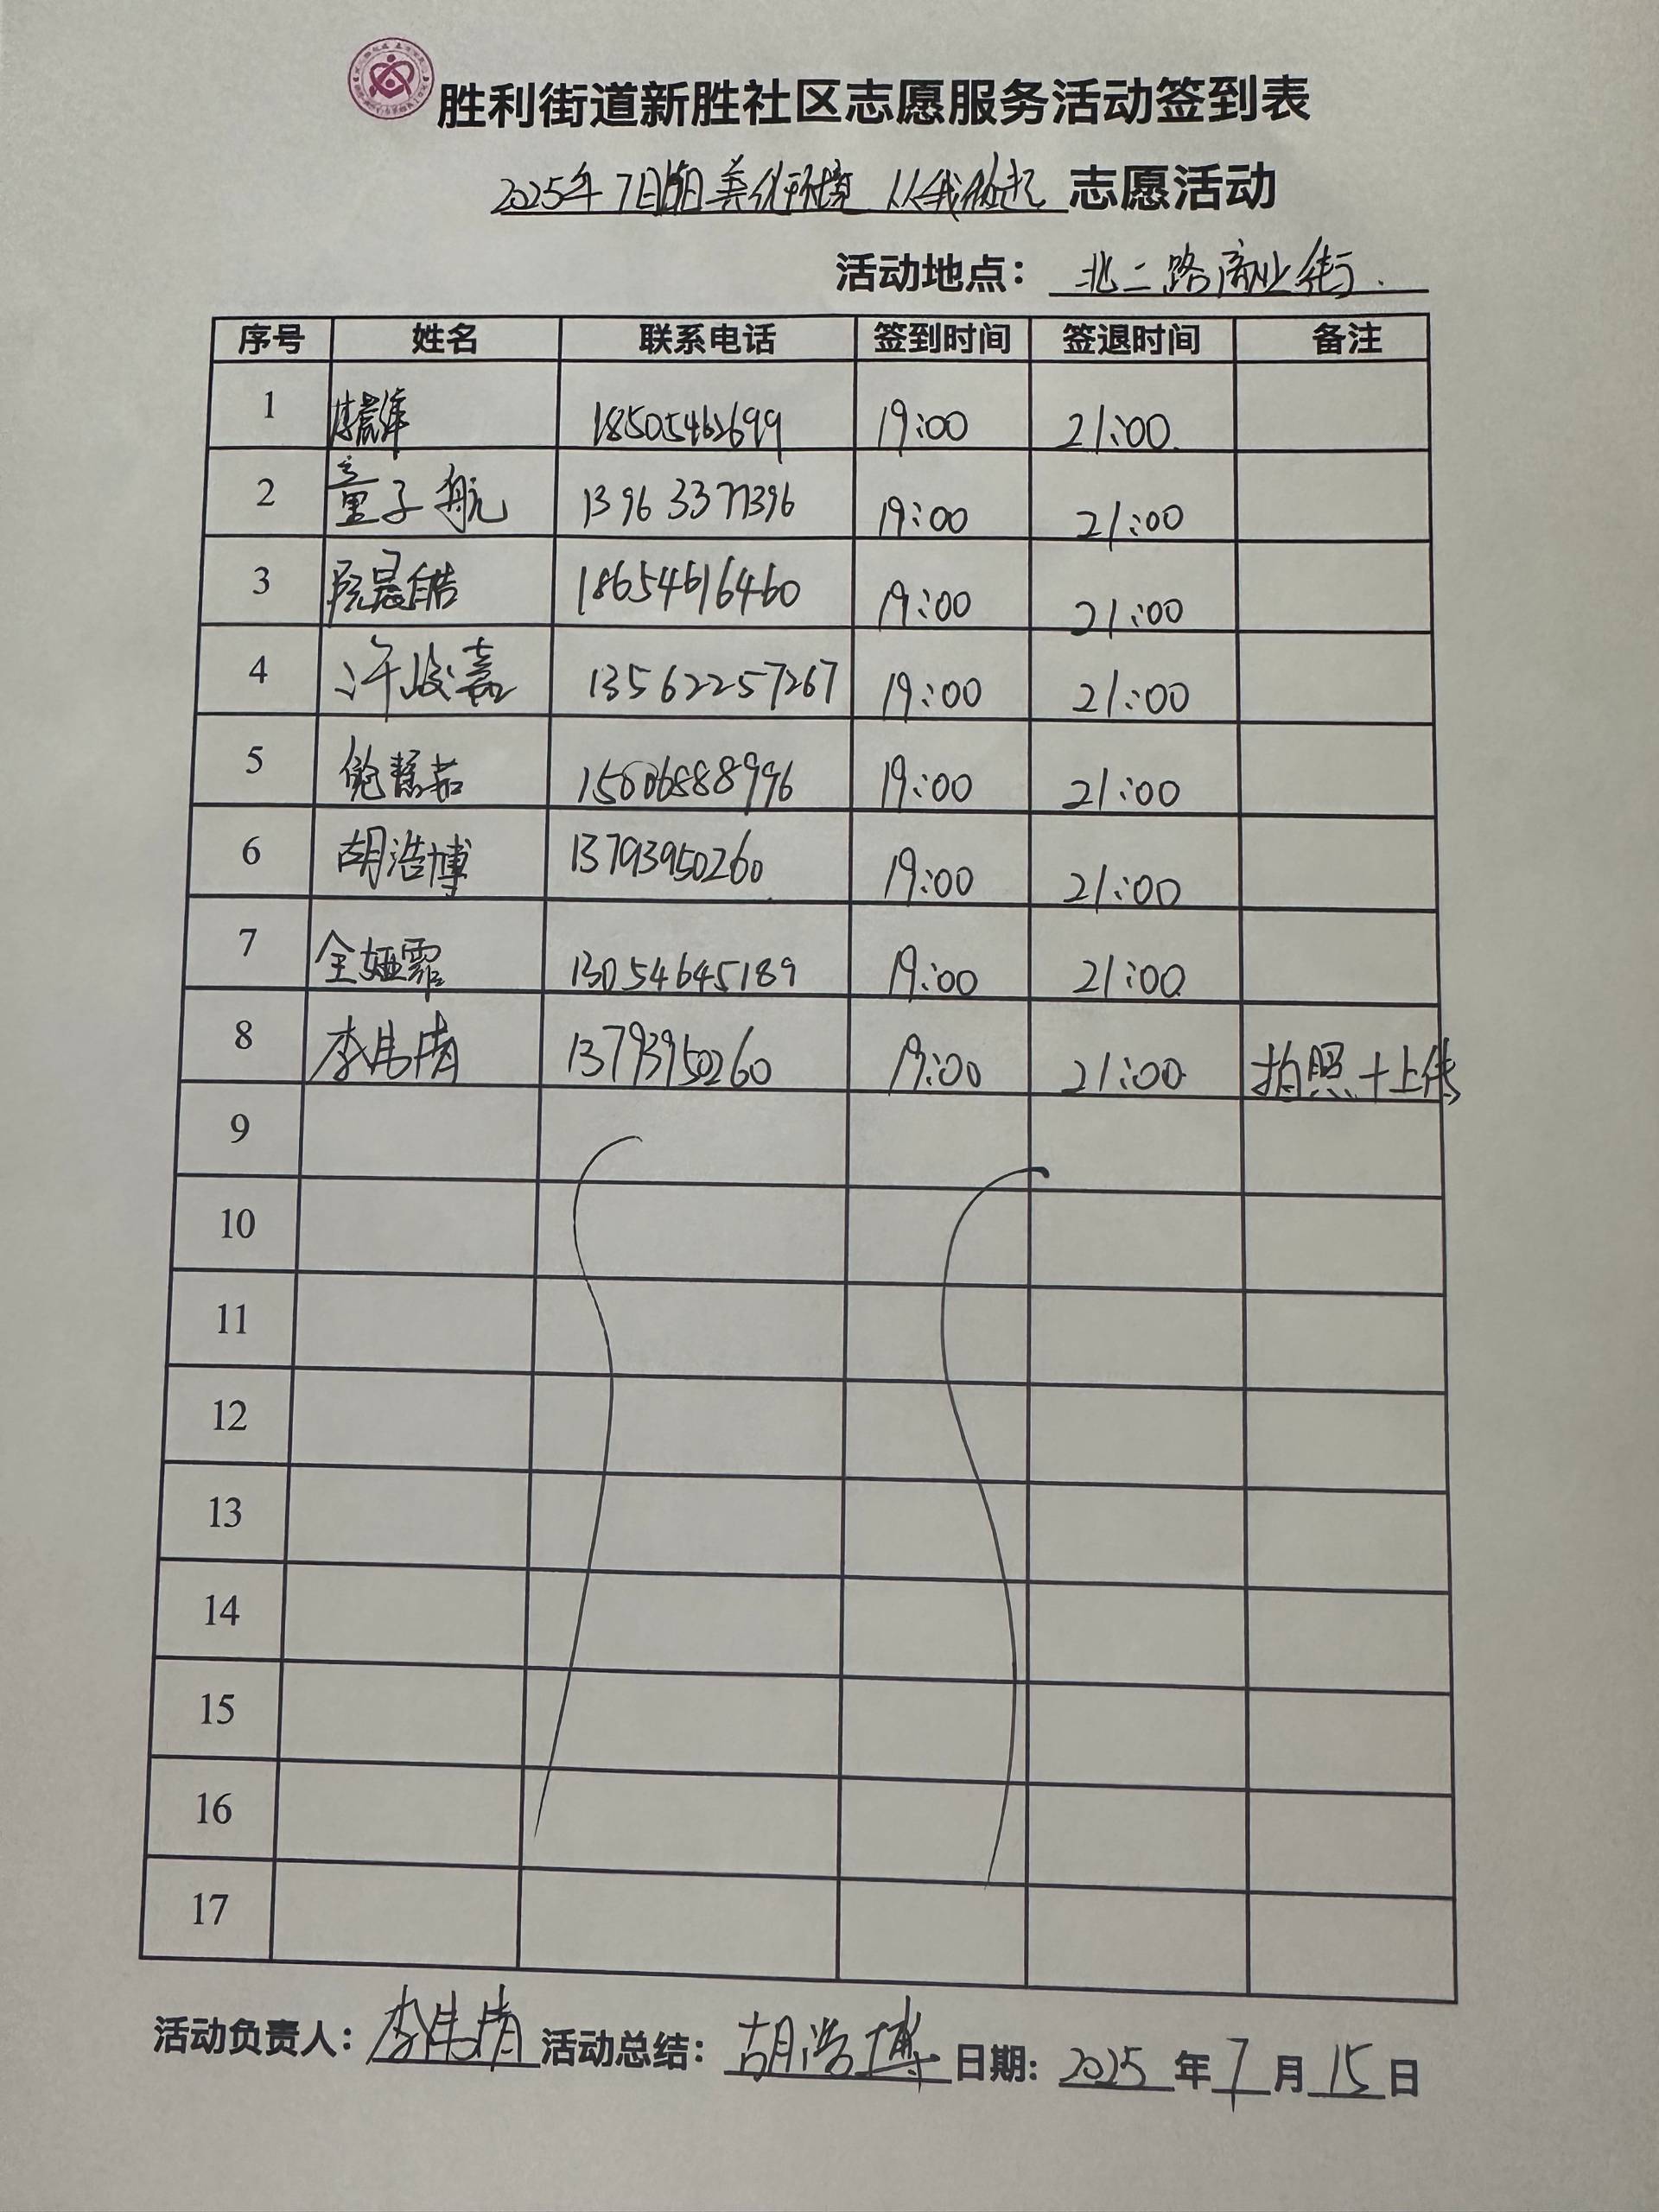 胜利街道新胜社区志愿服务活动签到表
2025年7日 美化环境 从我做起 志愿活动
活动地点： 北二路商业街.
序号 姓名 联系电话 签到时间 签退时间 备注
1 18505462699 19:00 21:00
2 童子航 13963377396 19:00 21:00
3 晨皓 18654616460 19:00 21:00
4 许峻嘉 13562257267 19:00 21:00
5 鲍慧茹 15006888996 19:00 21:00
6 胡浩博 13793950260 19:00 21:00
7 全娅霏 13054645189 19:00 21:00
8 李伟倩 13793950260 19:00 21:00 拍照+上传
9
10
11
12
13
14
15
16
17
活动负责人：李伟倩 活动总结：胡浩博 日期：2025年7月15日